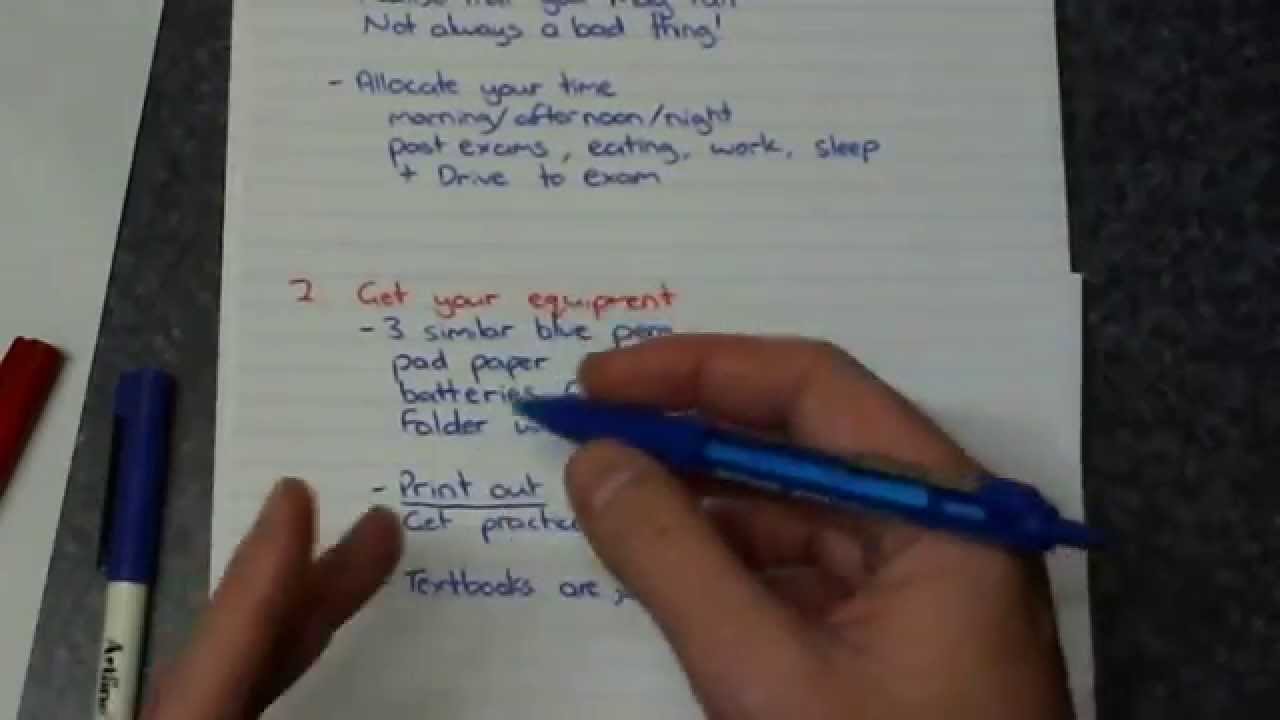 Not always a bad thing!
- Allocate your time
morning/afternoon/night
past exams, eating, work, sleep
+ Drive to exam
2 Get your equipment
- 3 similar blue pens
pad paper
batteries
Folder
- Print out
Get practice
Textbooks are